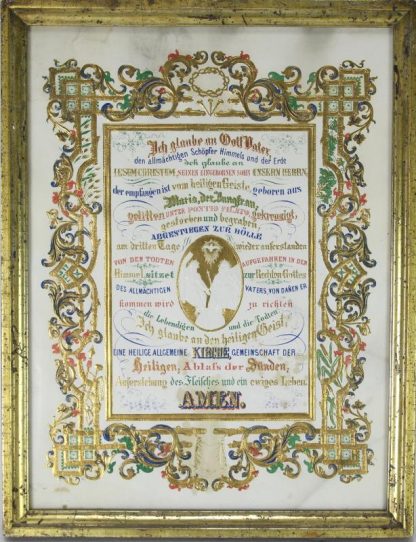 Ich glaube an Gott Vater,
den allmächtigen Schöpfer Himmels und der Erde
Ich glaube an
JESUM CHRISTUM, SEINEN EINGEBORNEN SOHN UNSERN HERRN,
der empfangen ist vom heiligen Geiste, geboren aus
Maria, der Jungfrau,
gelitten UNTER PONTIO PILATO, gekreuzigt,
gestorben und begraben,
ABGESTIEGEN ZUR HÖLLE
am dritten Tage wieder auferstanden
VON DEN TODTEN AUFGEFAHREN IN DEN
Himmel sitzet zur Rechten Gottes
DES ALLMÄCHTIGEN VATERS, VON DANEN ER
kommen wird zu richten
die Lebendigen und die Todten.
Ich glaube an den heiligen Geist,
EINE HEILIGE ALLGEMEINE KIRCHE, GEMEINSCHAFT DER
Heiligen, Ablaß der Sünden,
Auferstehung des Fleisches und ein ewiges Leben.
AMEN.